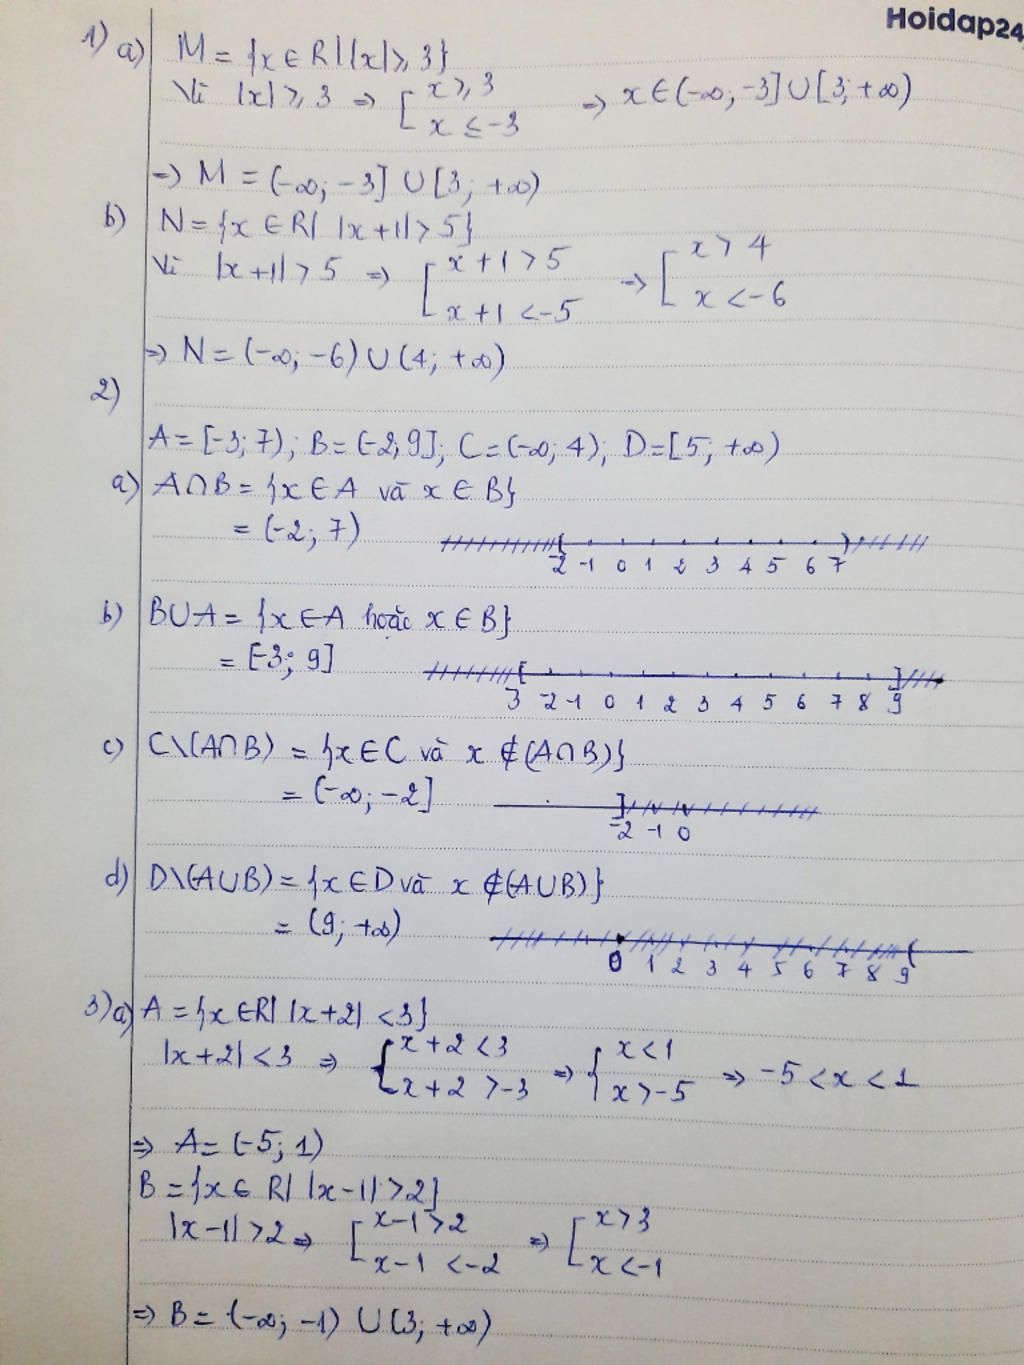 Hoidap24
1) a) M = {x ∈ R | |x| ⩾ 3}
Vì |x| ⩾ 3 => [ x ⩾ 3 => x ∈ (-∞; -3] ∪ [3; +∞)
x ≤ -3
=> M = (-∞; -3] ∪ [3; +∞)
b) N = {x ∈ R | |x+1| > 5}
Vì |x+1| > 5 => [ x+1 > 5 => [ x > 4
x+1 < -5 x < -6
=> N = (-∞; -6) ∪ (4; +∞)
2)
A = [-3; 7); B = (-2; 9]; C = (-∞; 4); D = [5; +∞)
a) A∩B = {x ∈ A và x ∈ B}
= (-2; 7)
-2 -1 0 1 2 3 4 5 6 7
b) B∪A = {x ∈ A hoặc x ∈ B}
= [-3; 9]
3 -2 -1 0 1 2 3 4 5 6 7 8 9
c) C\(A∩B) = {x ∈ C và x ∉ (A∩B)}
= (-∞; -2]
-2 -1 0
d) D\(A∪B) = {x ∈ D và x ∉ (A∪B)}
= (9; +∞)
0 1 2 3 4 5 6 7 8 9
3) a) A = {x ∈ R | |x+2| < 3}
|x+2| < 3 => { x+2 < 3 => { x < 1 => -5 < x < 1
x+2 > -3 x > -5
=> A = (-5; 1)
B = {x ∈ R | |x-1| > 2}
|x-1| > 2 => [ x-1 > 2 => [ x > 3
x-1 < -2 x < -1
=> B = (-∞; -1) ∪ (3; +∞)